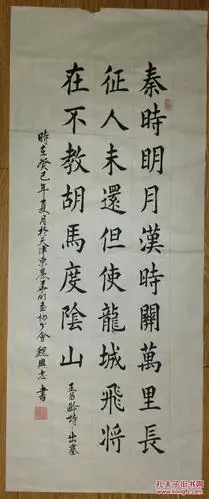 秦時明月漢時關萬里長
征人未還但使龍城飛將
在不教胡馬度陰山
王昌齡詩 出塞
時在癸巳年夏月於天津東麗
書